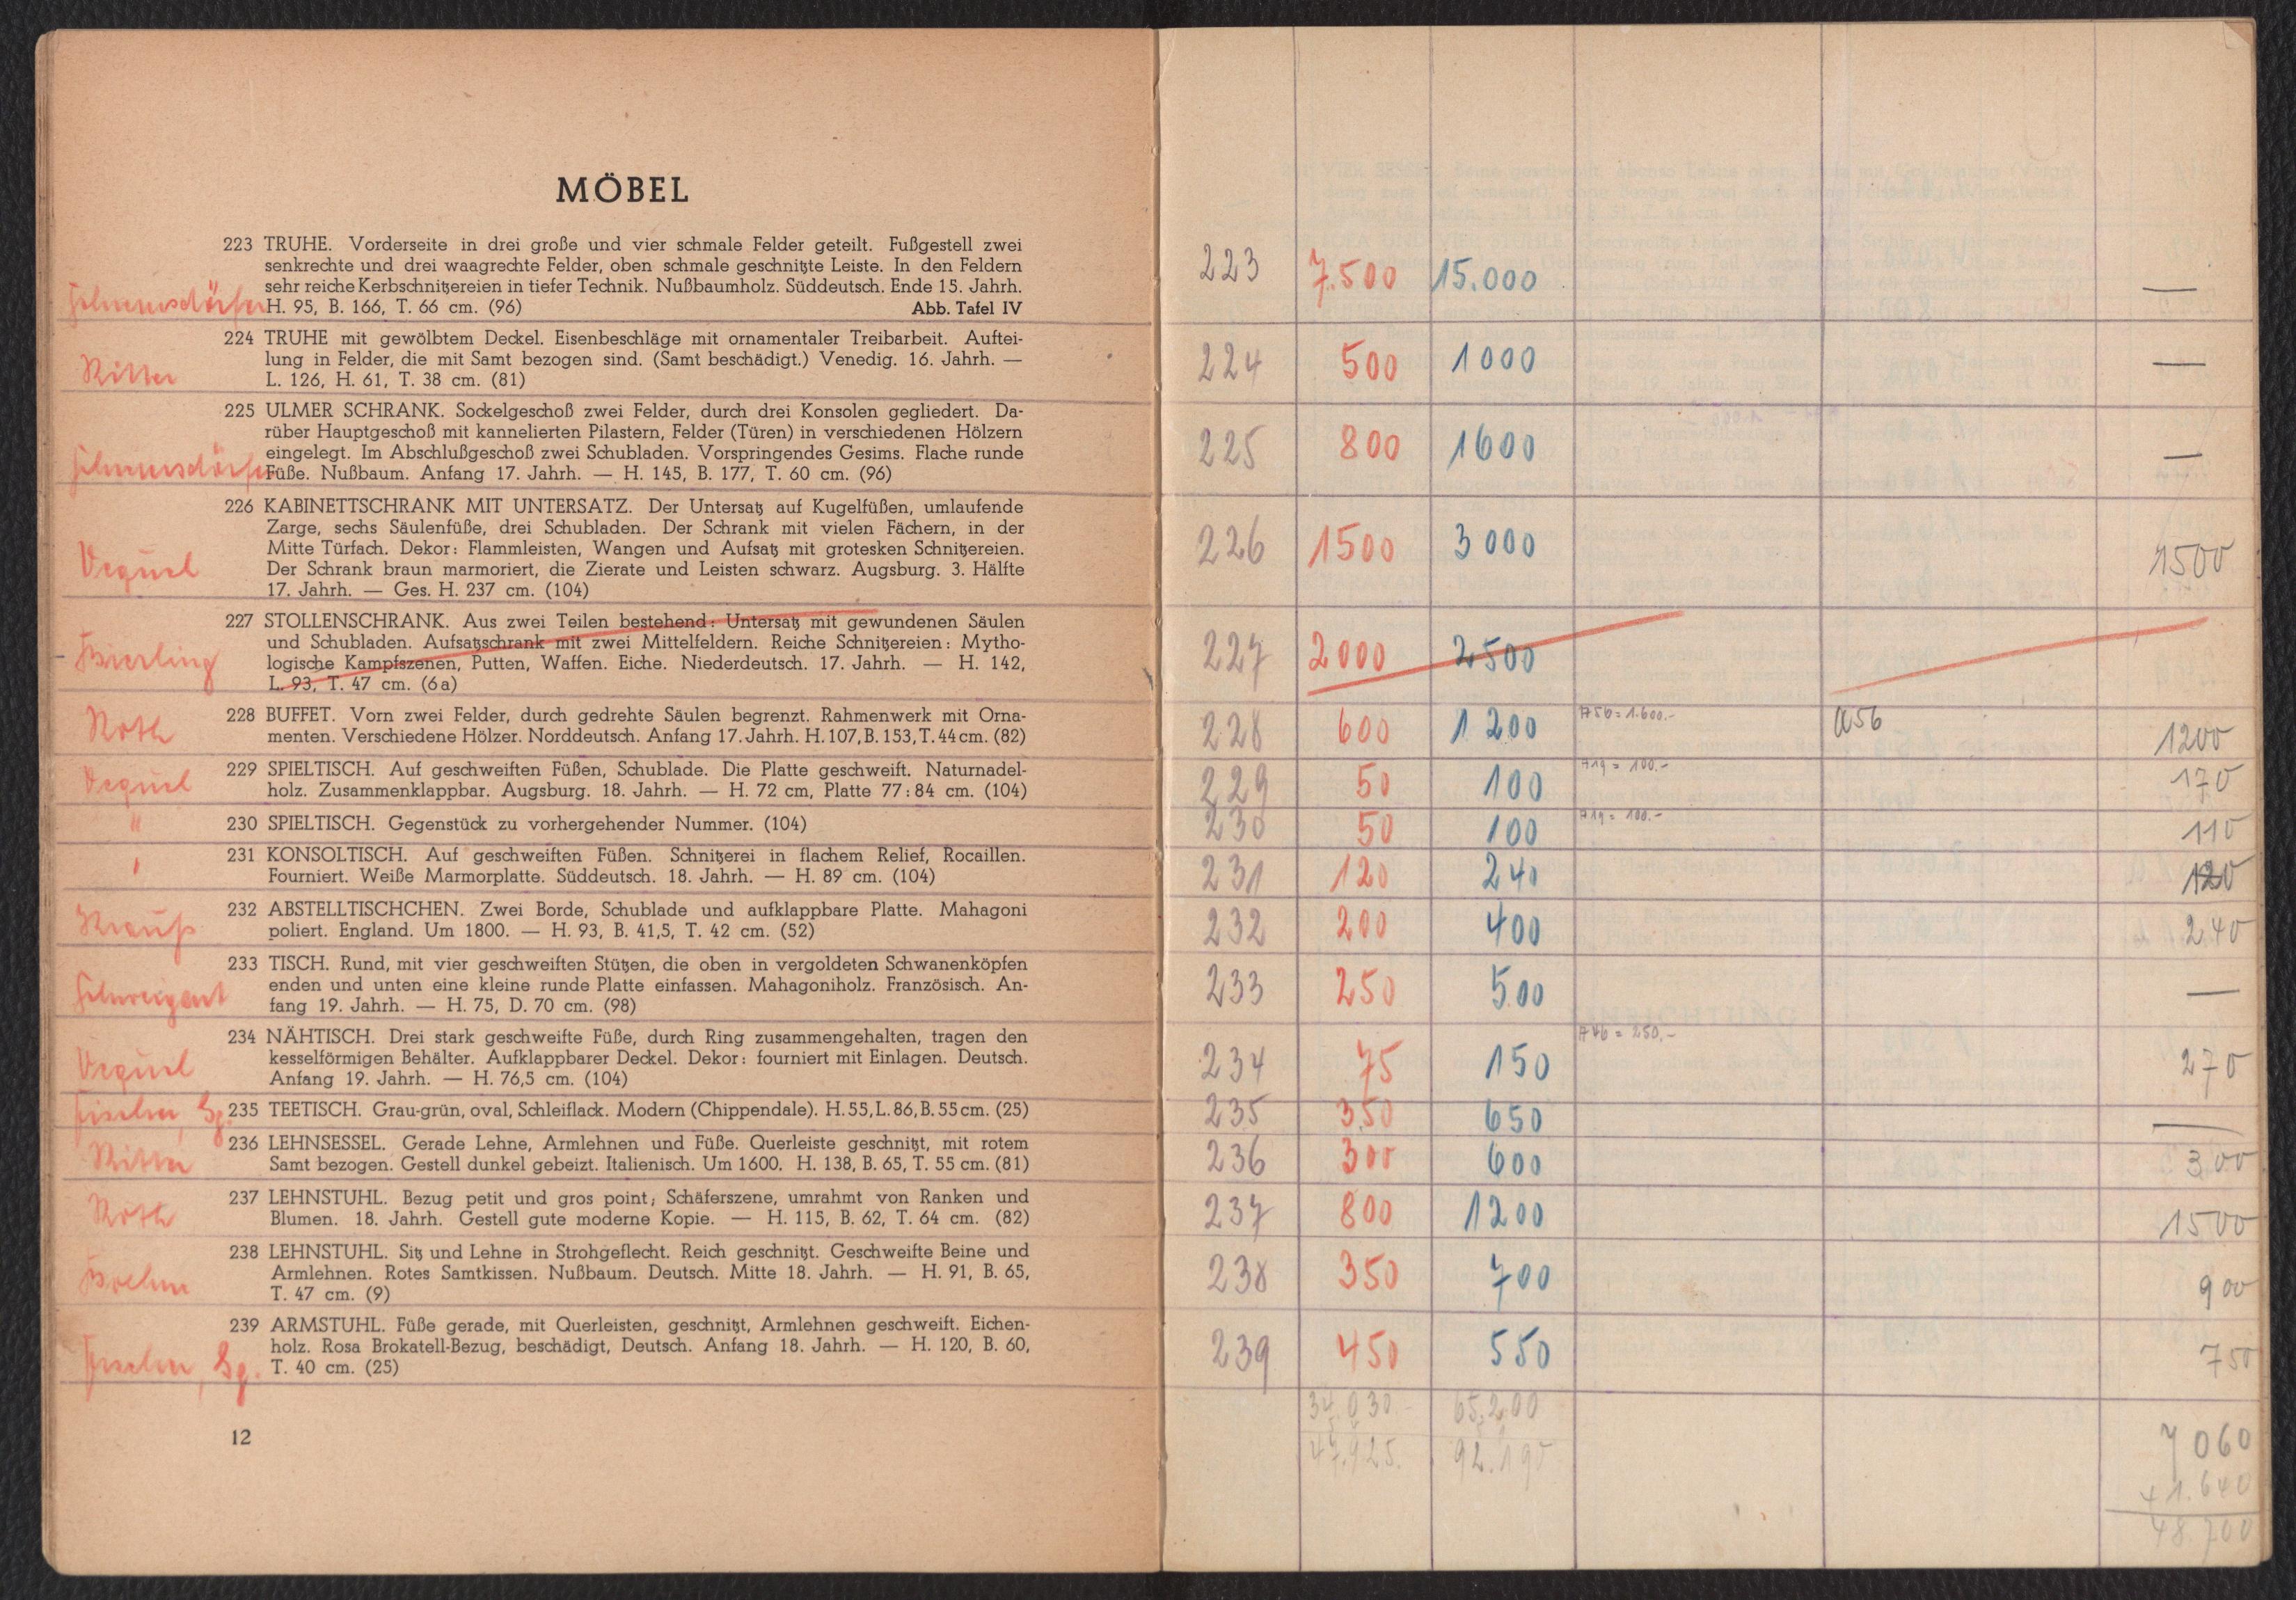 MÖBEL
223 TRUHE. Vorderseite in drei große und vier schmale Felder geteilt. Fußgestell zwei
senkrechte und drei waagrechte Felder, oben schmale geschnitzte Leiste. In den Feldern
sehr reiche Kerbschnitzereien in tiefer Technik. Nußbaumholz. Süddeutsch. Ende 15. Jahrh.
H. 95, B. 166, T. 66 cm. (96) Abb. Tafel IV
224 TRUHE mit gewölbtem Deckel. Eisenbeschläge mit ornamentaler Treibarbeit. Auftei-
lung in Felder, die mit Samt bezogen sind. (Samt beschädigt.) Venedig. 16. Jahrh. —
Ritter L. 126, H. 61, T. 38 cm. (81)
225 ULMER SCHRANK. Sockelgeschoß zwei Felder, durch drei Konsolen gegliedert. Da-
rüber Hauptgeschoß mit kannelierten Pilastern, Felder (Türen) in verschiedenen Hölzern
eingelegt. Im Abschlußgeschoß zwei Schubladen. Vorspringendes Gesims. Flache runde
Füße. Nußbaum. Anfang 17. Jahrh. — H. 145, B. 177, T. 60 cm. (96)
226 KABINETTSCHRANK MIT UNTERSATZ. Der Untersatz auf Kugelfüßen, umlaufende
Zarge, sechs Säulenfüße, drei Schubladen. Der Schrank mit vielen Fächern, in der
Mitte Türfach. Dekor: Flammleisten, Wangen und Aufsatz mit grotesken Schnitzereien.
Vequel Der Schrank braun marmoriert, die Zierate und Leisten schwarz. Augsburg. 3. Hälfte
17. Jahrh. — Ges. H. 237 cm. (104)
227 STOLLENSCHRANK. Aus zwei Teilen bestehend: Untersatz mit gewundenen Säulen
und Schubladen. Aufsatzschrank mit zwei Mittelfeldern. Reiche Schnitzereien: Mytho-
Bierling logische Kampfszenen, Putten, Waffen. Eiche. Niederdeutsch. 17. Jahrh. — H. 142,
L. 93, T. 47 cm. (6a)
228 BUFFET. Vorn zwei Felder, durch gedrehte Säulen begrenzt. Rahmenwerk mit Orna-
Roth menten. Verschiedene Hölzer. Norddeutsch. Anfang 17. Jahrh. H. 107, B. 153, T. 44 cm. (82)
229 SPIELTISCH. Auf geschweiften Füßen, Schublade. Die Platte geschweift. Naturnadel-
Vequel holz. Zusammenklappbar. Augsburg. 18. Jahrh. — H. 72 cm, Platte 77:84 cm. (104)
" 230 SPIELTISCH. Gegenstück zu vorhergehender Nummer. (104)
231 KONSOLTISCH. Auf geschweiften Füßen. Schnitzerei in flachem Relief, Rocaillen.
Fourniert. Weiße Marmorplatte. Süddeutsch. 18. Jahrh. — H. 89 cm. (104)
232 ABSTELLTISCHCHEN. Zwei Borde, Schublade und aufklappbare Platte. Mahagoni
Krauß poliert. England. Um 1800. — H. 93, B. 41,5, T. 42 cm. (52)
233 TISCH. Rund, mit vier geschweiften Stützen, die oben in vergoldeten Schwanenköpfen
Schweigart enden und unten eine kleine runde Platte einfassen. Mahagoniholz. Französisch. An-
fang 19. Jahrh. — H. 75, D. 70 cm. (98)
234 NÄHTISCH. Drei stark geschweifte Füße, durch Ring zusammengehalten, tragen den
Vequel kesselförmigen Behälter. Aufklappbarer Deckel. Dekor: fourniert mit Einlagen. Deutsch.
Anfang 19. Jahrh. — H. 76,5 cm. (104)
Fischer, Lg. 235 TEETISCH. Grau-grün, oval, Schleiflack. Modern (Chippendale). H. 55, L. 86, B. 55 cm. (25)
236 LEHNSESSEL. Gerade Lehne, Armlehnen und Füße. Querleiste geschnitzt, mit rotem
Ritter Samt bezogen. Gestell dunkel gebeizt. Italienisch. Um 1600. H. 138, B. 65, T. 55 cm. (81)
237 LEHNSTUHL. Bezug petit und gros point; Schäferszene, umrahmt von Ranken und
Roth Blumen. 18. Jahrh. Gestell gute moderne Kopie. — H. 115, B. 62, T. 64 cm. (82)
238 LEHNSTUHL. Sitz und Lehne in Strohgeflecht. Reich geschnitzt. Geschweifte Beine und
Boehm Armlehnen. Rotes Samtkissen. Nußbaum. Deutsch. Mitte 18. Jahrh. — H. 91, B. 65,
T. 47 cm. (9)
239 ARMSTUHL. Füße gerade, mit Querleisten, geschnitzt, Armlehnen geschweift. Eichen-
holz. Rosa Brokatell-Bezug, beschädigt, Deutsch. Anfang 18. Jahrh. — H. 120, B. 60,
Fischer, Lg. T. 40 cm. (25)
12
223 7.500 15.000 —
224 500 1000 —
225 800 1600 —
226 1500 3000 1500
227 2000 2500
228 600 1200 A56 = 1.600.- A56 1200
229 50 100 A19 = 100.- 170
230 50 100 A19 = 100.- 110
231 120 240 120
232 200 400 240
233 250 500 —
234 75 150 A46 = 250,- 270
235 350 650 —
236 300 600 300
237 800 1200 1500
238 350 700 900
239 450 550 750
34.030.- 65.200
47.925. 92.190
7060
41.640
48.700